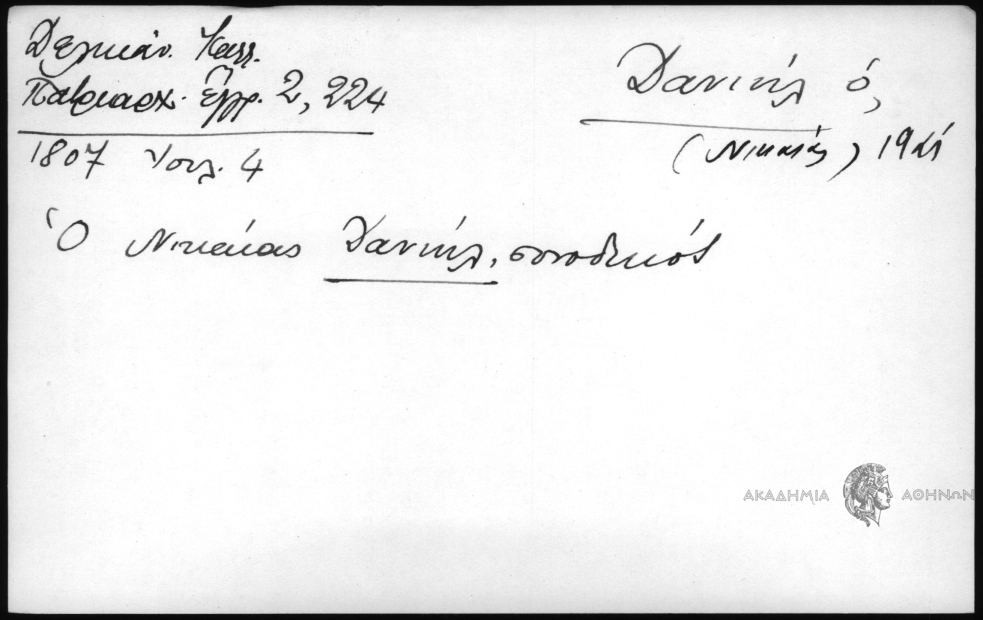 Δελικάν. Καλλ.
Πατριαρχ. Ἔγγρ. 2, 224
1807 Ἰουλ. 4
Δανιήλ ὁ,
(Νικαίας) 19
Ὁ Νικαίας Δανιήλ, συνοδικός
ΑΚΑΔΗΜΙΑ ΑΘΗΝΩΝ